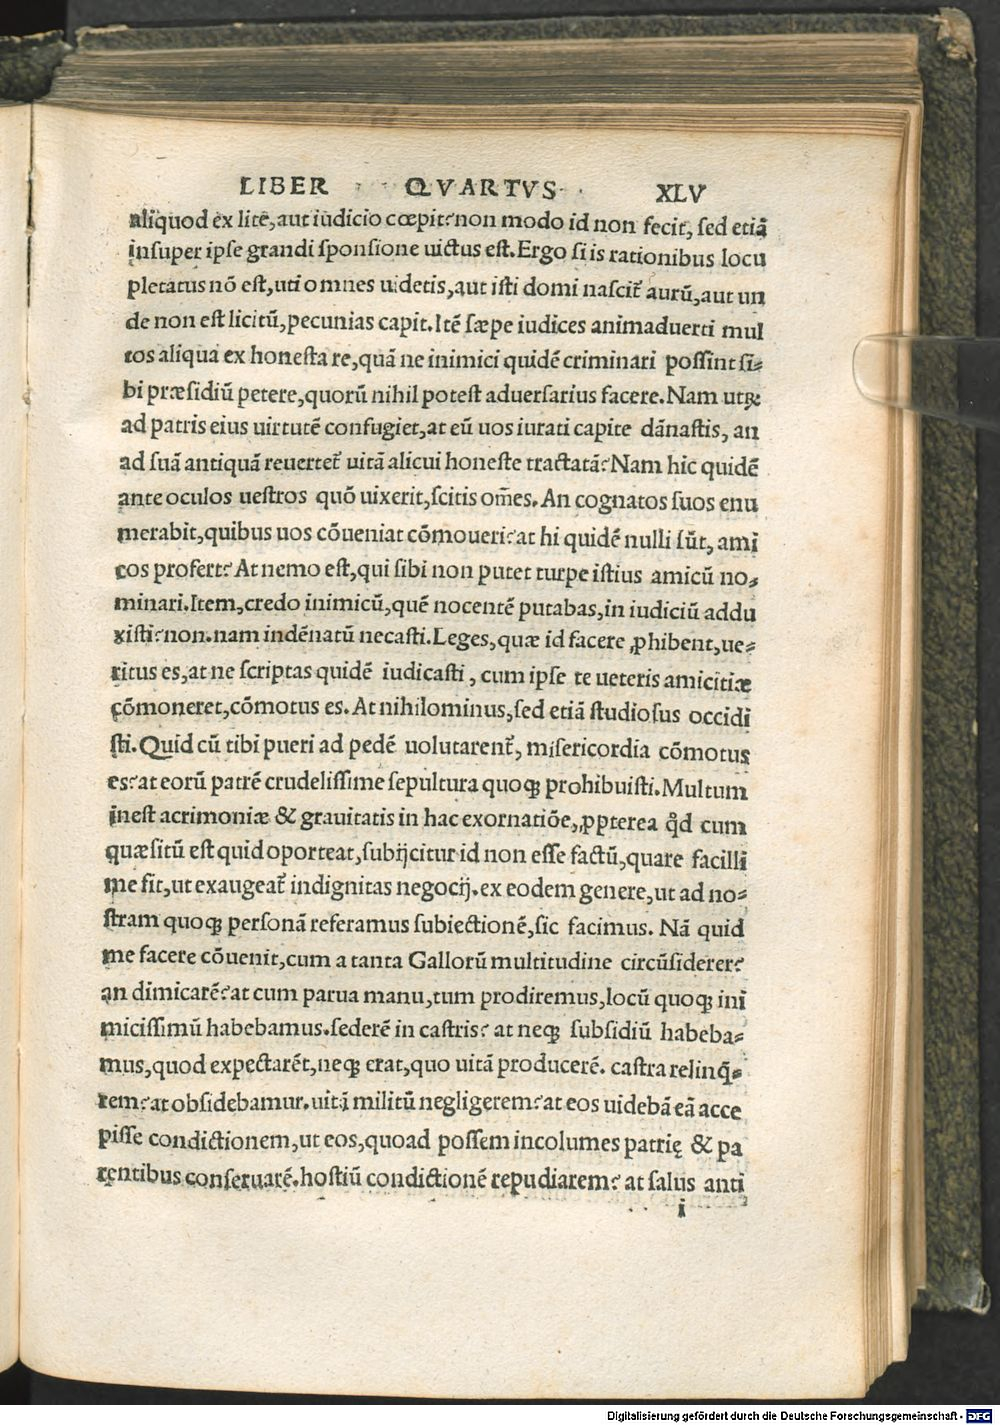 LIBER QVARTVS XLV
aliquod ex litē, aut iudicio cœpit? non modo id non fecit, sed etiā
insuper ipse grandi sponsione uictus est. Ergo si is rationibus locu
pletatus nō est, uti omnes uidetis, aut isti domi nascit᷑ aurū, aut un
de non est licitū, pecunias capit. Itē sæpe iudices animaduerti mul
tos aliqua ex honesta re, quā ne inimici quidē criminari possint si⸗
bi præsidiū petere, quorū nihil potest aduersarius facere. Nam utꝝ
ad patris eius uirtutē confugiet, at eū uos iurati capite dānastis, an
ad suā antiquā reuertet᷑ uitā alicui honeste tractatā? Nam hic quidē
ante oculos uestros quō uixerit, scitis om̄es. An cognatos suos enu
merabit, quibus uos cōueniat cōmoueri? at hi quidē nulli sūt, ami
cos profert? At nemo est, qui sibi non putet turpe istius amicū no⸗
minari. Item, credo inimicū, quē nocentē putabas, in iudiciū addu
xisti? non. nam indēnatū necasti. Leges, quæ id facere ꝓhibent, ue⸗
ritus es, at ne scriptas quidē iudicasti, cum ipse te ueteris amicitiæ
cōmoneret, cōmotus es. At nihilominus, sed etiā studiosus occidi
sti. Quid cū tibi pueri ad pedē uolutarent᷑, misericordia cōmotus
es? at eorū patrē crudelissime sepultura quoqꝫ prohibuisti. Multum
inest acrimoniæ & grauitatis in hac exornatiōe, ꝓpterea qd̄ cum
quæsitū est quid oporteat, subijcitur id non esse factū, quare facilli
me fit, ut exaugeat᷑ indignitas negocij. ex eodem genere, ut ad no⸗
stram quoqꝫ personā referamus subiectionē, sic facimus. Nā quid
me facere cōuenit, cum a tanta Gallorū multitudine circūsiderer?
an dimicarē? at cum parua manu, tum prodiremus, locū quoqꝫ ini
micissimū habebamus. sederē in castris? at neqꝫ subsidiū habeba⸗
mus, quod expectarēt, neqꝫ erat, quo uitā producerē. castra relinq̄⸗
rem? at obsidebamur. uitā militū negligerem? at eos uidebā eā acce
pisse condictionem, ut eos, quoad possem incolumes patrię & pa
rentibus conseruarē. hostiū condictionē repudiarem? at salus anti
i
Digitalisierung gefördert durch die Deutsche Forschungsgemeinschaft - DFG